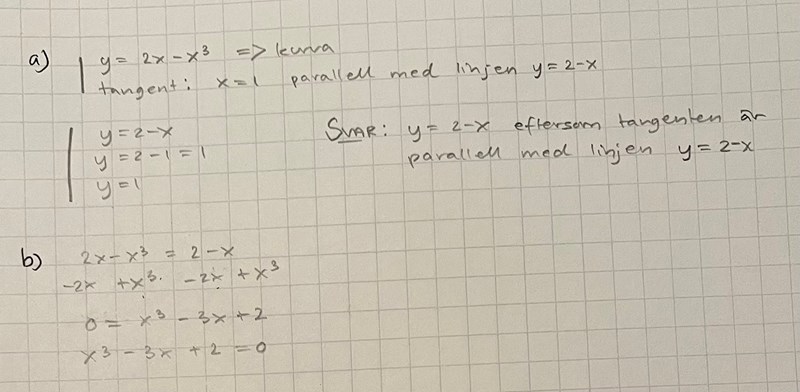 a) y = 2x - x³ => kurva
tangent: x = 1 parallell med linjen y = 2-x
y = 2-x
y = 2 - 1 = 1
y = 1
SVAR: y = 2-x eftersom tangenten är
parallell med linjen y = 2-x
b) 2x - x³ = 2 - x
-2x +x³ -2x + x³
0 = x³ - 3x + 2
x³ - 3x + 2 = 0